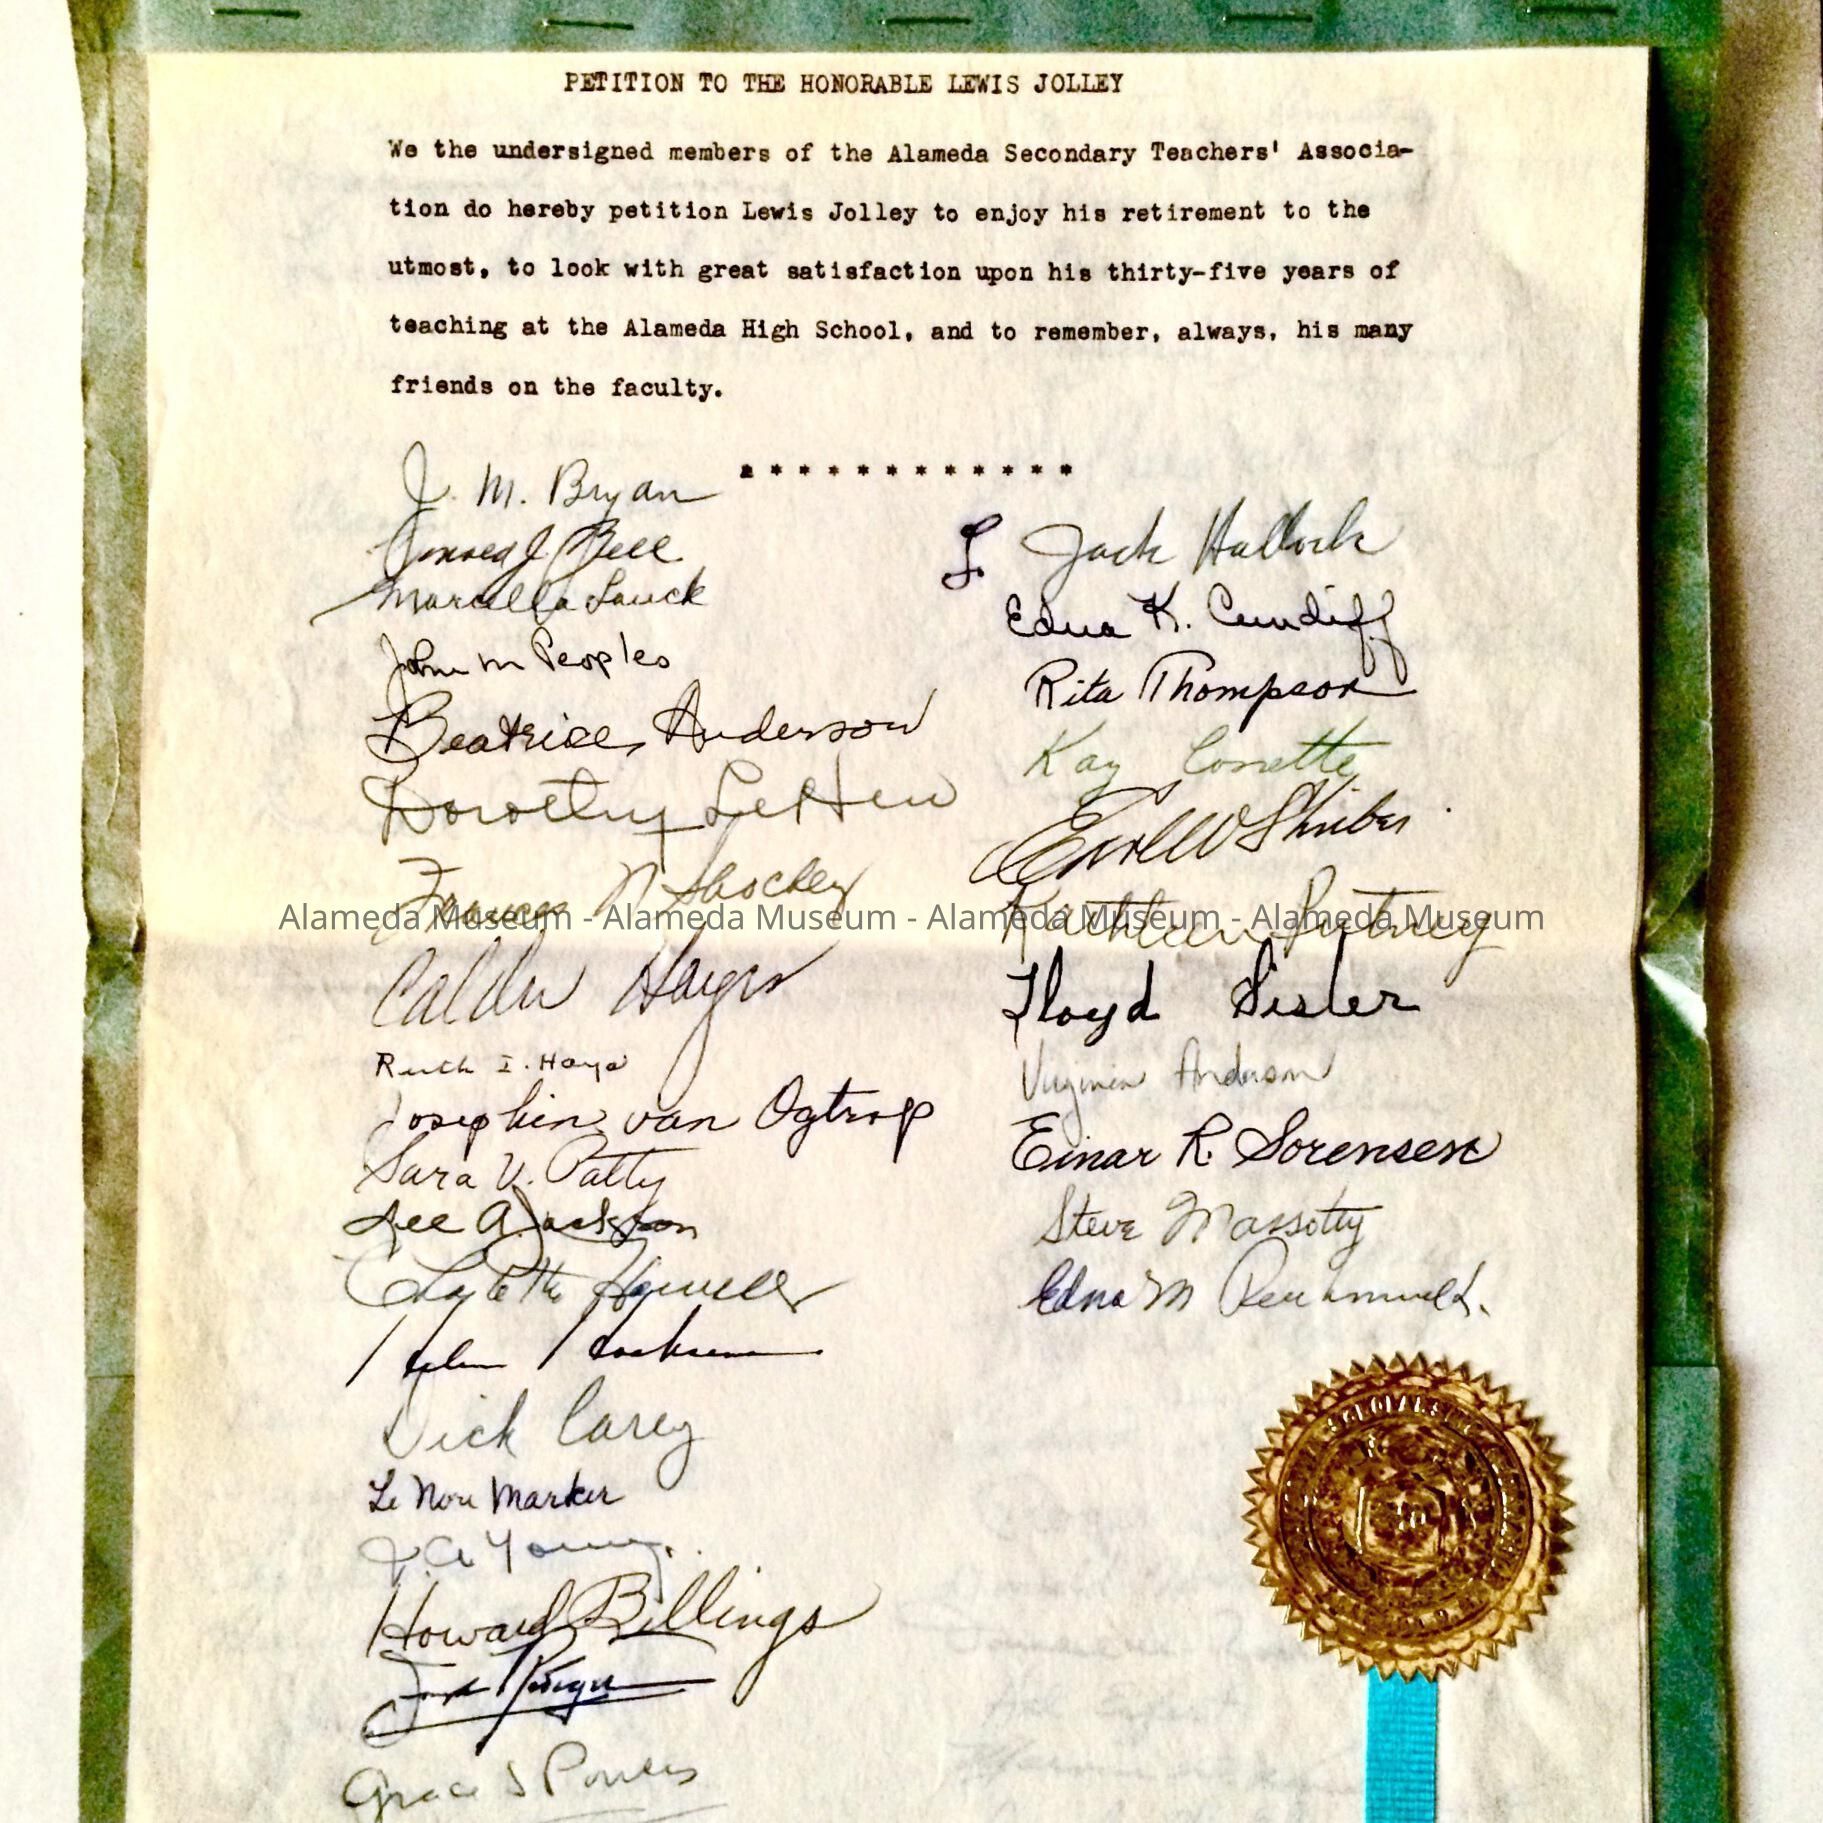 PETITION TO THE HONORABLE LEWIS JOLLEY
We the undersigned members of the Alameda Secondary Teachers' Associa-
tion do hereby petition Lewis Jolley to enjoy his retirement to the
utmost, to look with great satisfaction upon his thirty-five years of
teaching at the Alameda High School, and to remember, always, his many
friends on the faculty.
* * * * * * * * * * * *
J. M. Bryan
Bell
Marcella Lauck
John M Peoples
Beatrice Anderson
Dorothy LeHew
Frances N Shockey
Calder Hayes
Ruth I. Hays
Josephine van Ogtrop
Sara V. Patty
Lee A. Jackson
Helen
Dick Carey
LeNore Marker
J. A. Young
Howard Billings
Grace S Powers
L. Jack Hallock
Edna K. Cundiff
Rita Thompson
Kay
Earl W Shriber
Kathleen Putney
Lloyd Sisler
Virginia Anderson
Einar R. Sorensen
Steve Massotty
Edna M
Alameda Museum - Alameda Museum - Alameda Museum - Alameda Museum